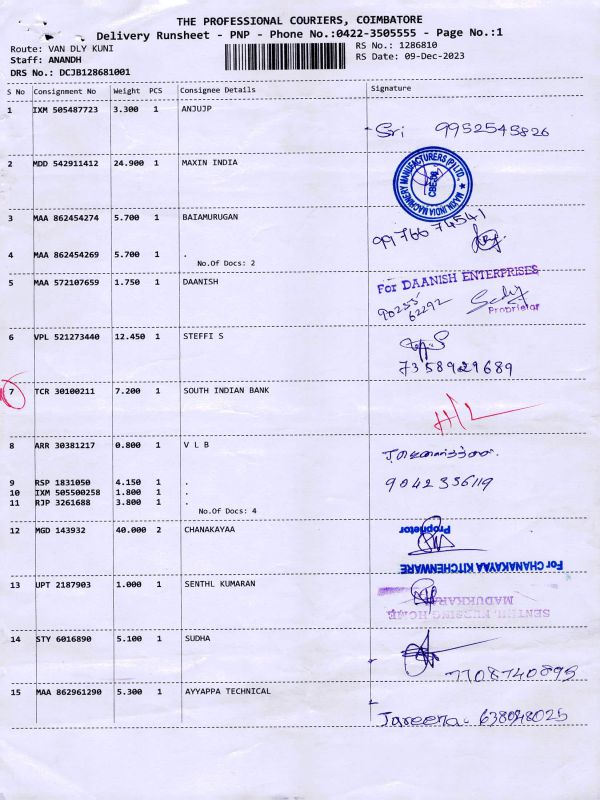 THE PROFESSIONAL COURIERS, COIMBATORE
Delivery Runsheet - PNP - Phone No.:0422-3505555 - Page No.:1
Route: VAN DLY KUNI
RS No.: 1286810
Staff: ANANDH
RS Date: 09-Dec-2023
DRS No.: DCJB128681001
S No Consignment No Weight PCS Consignee Details Signature
1 IXM 505487723 3.300 1 ANJUJP
Sri 9952545826
2 MDD 542911412 24.900 1 MAXIN INDIA
MAXIN INDIA MACHINERY MANUFACTURERS (P) LTD.
3 MAA 862454274 5.700 1 BAIAMURUGAN
9976674541
4 MAA 862454269 5.700 1 .
No.Of Docs: 2
5 MAA 572107659 1.750 1 DAANISH
For DAANISH ENTERPRISES
90255
62292
Proprietor
6 VPL 521273440 12.450 1 STEFFI S
7358929689
7 TCR 30100211 7.200 1 SOUTH INDIAN BANK
H/L
8 ARR 30381217 0.800 1 V L B
9 RSP 1831050 4.150 1 .
9042336119
10 IXM 505500258 1.800 1 .
11 RJP 3261688 3.800 1 .
No.Of Docs: 4
12 MGD 143932 40.000 2 CHANAKAYAA
Proprietor
For CHANAKAYAA KITCHENWARE
13 UPT 2187903 1.000 1 SENTHL KUMARAN
MADUKKARAI
NURSING HOME
14 STY 6016890 5.100 1 SUDHA
7708740895
15 MAA 862961290 5.300 1 AYYAPPA TECHNICAL
Jareena. 638048025